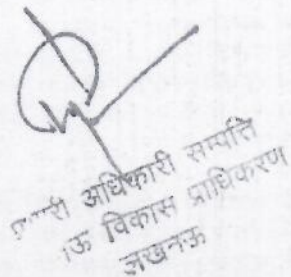 अधिकारी सम्पत्ति
विकास प्राधिकरण
लखनऊ